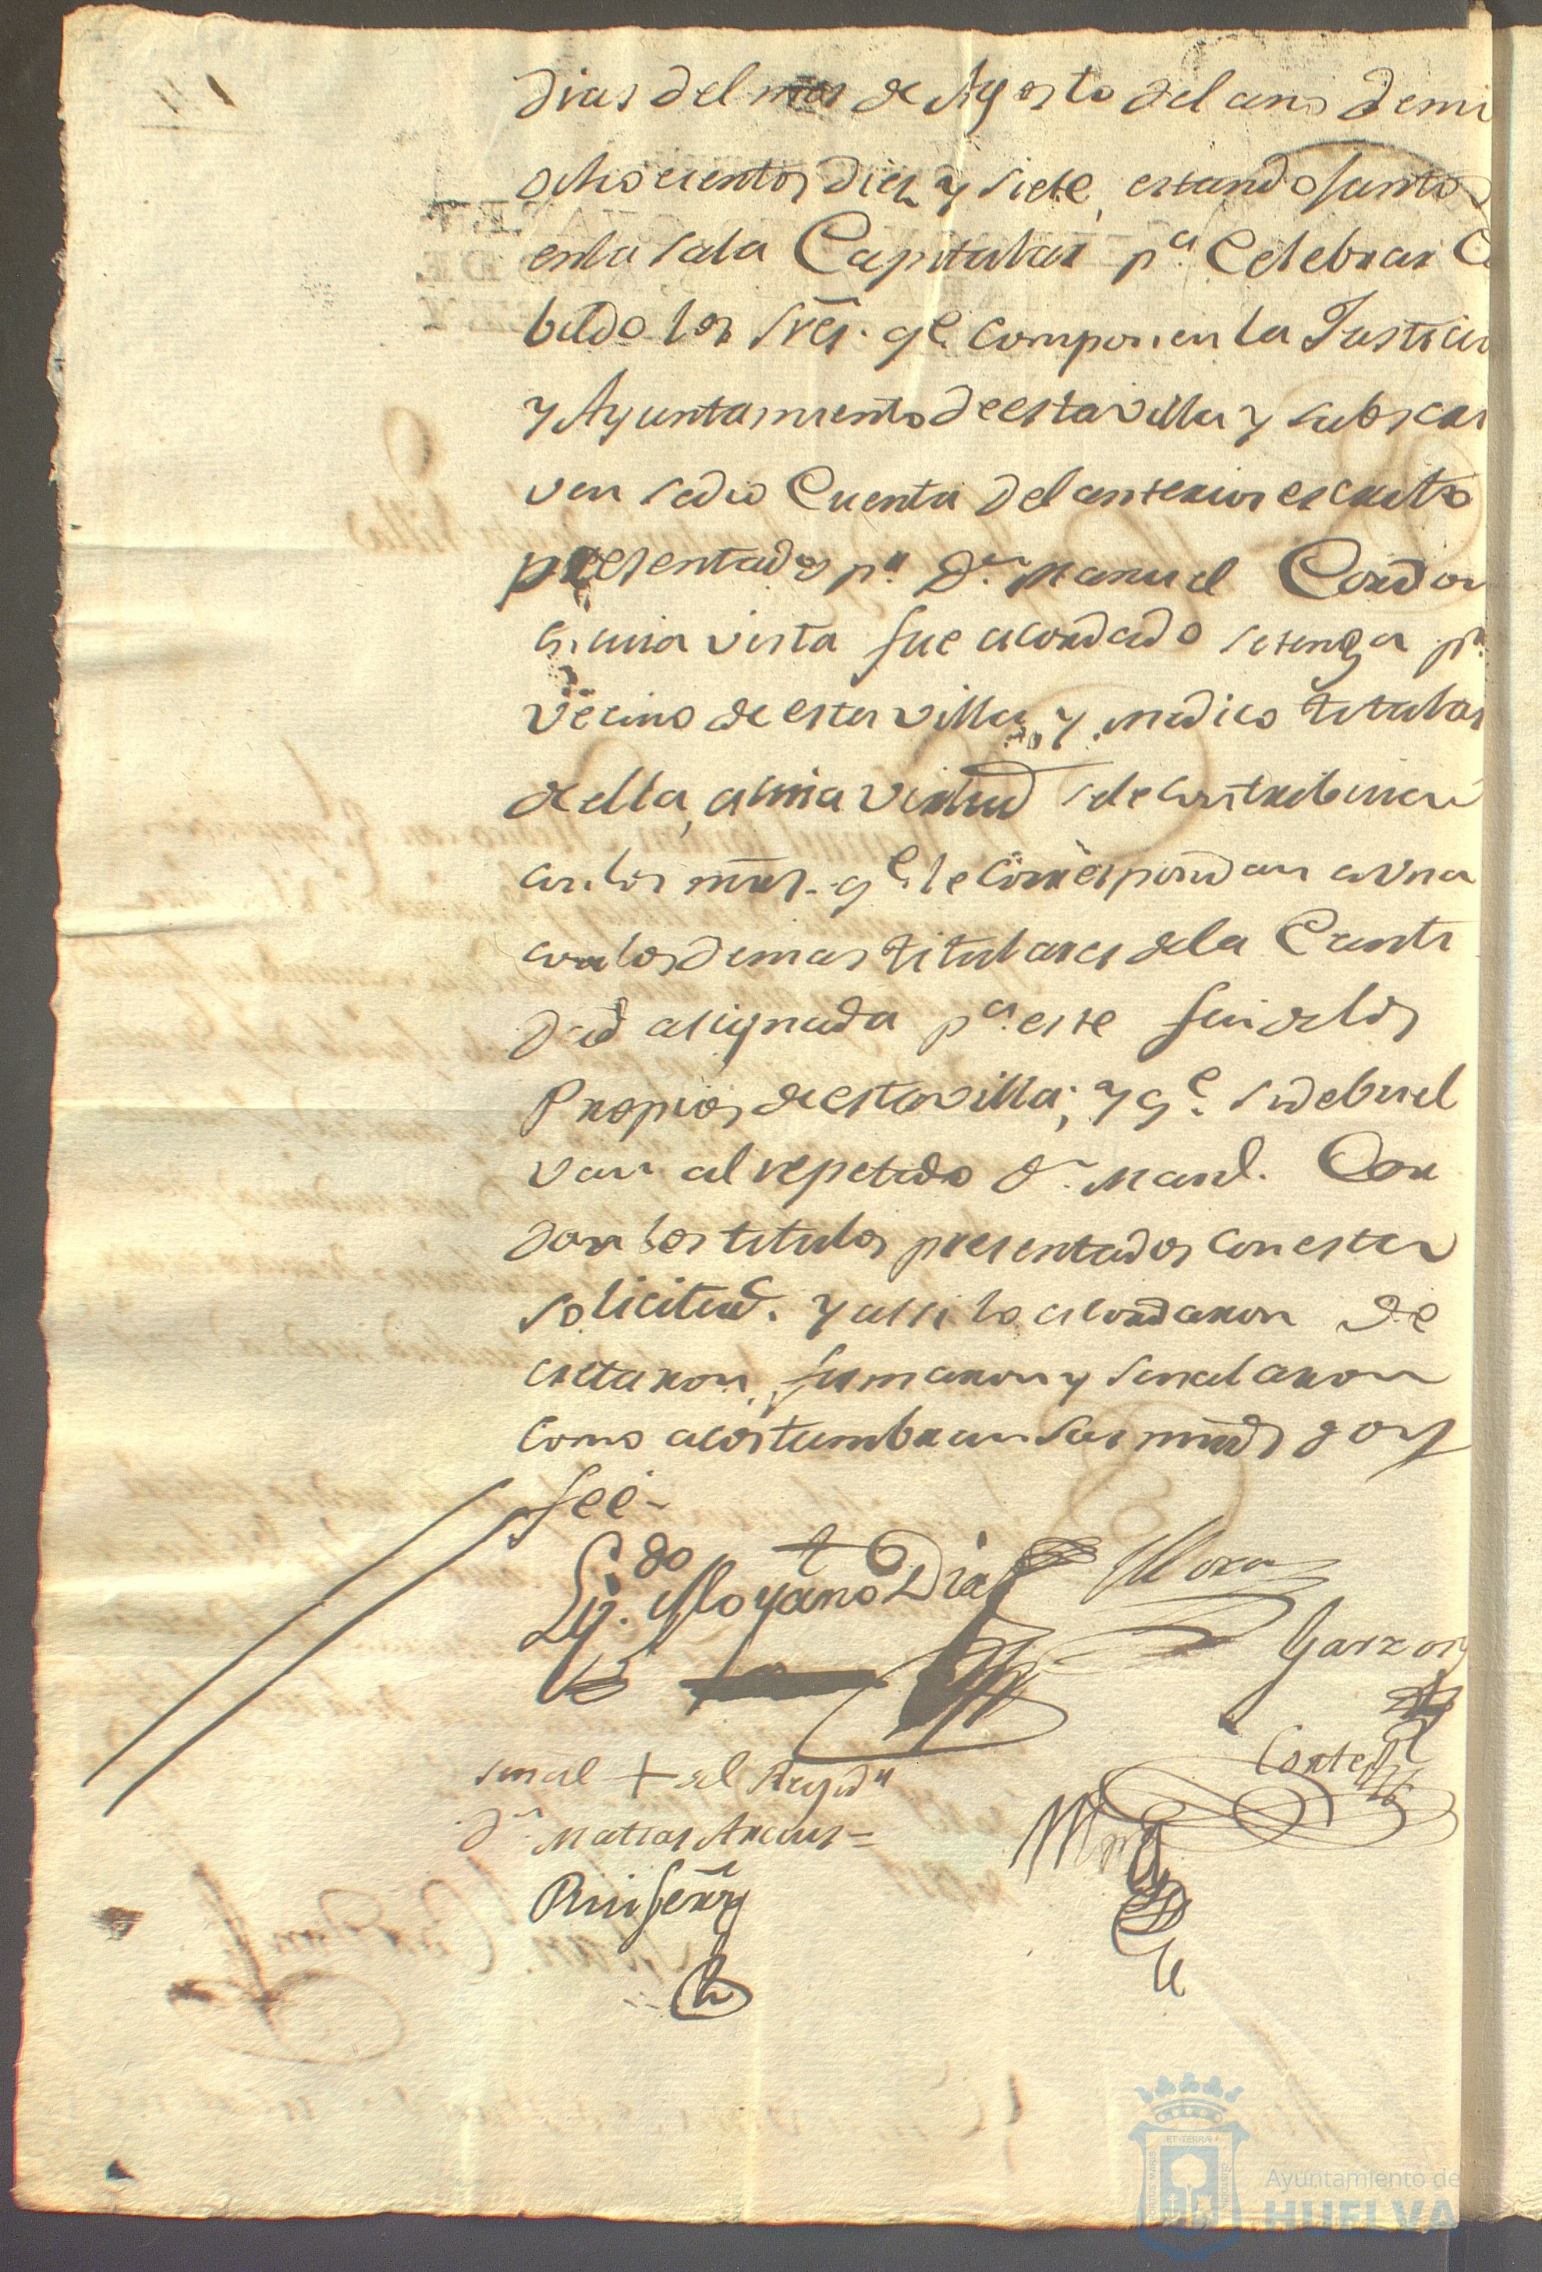 dias del mes de Agosto del ano demi
ochocientos diez y siete, estando juntos
enla sala Capitular pª Celebrar Ca
bildo los Sres. qe. componen la Justicia
y Ayuntamiento deestavilla y subscri
ven sedio Cuenta del anterior escrito
presentado pr. Dn. Manuel Cordon
a cuia vista fue acordado setenga pr.
vecino de esta villa, y medico titular
de ella, a cuia virtud sele contribuira
con los mrs. qe. le correspondan a una
con los demas titulares dela Canti
dad asignada pª. este fin delos
Propios de estavilla; y qe. se debuel
van al repetido Dn. Manl. Cor
don los titulos presentados con esta
solicitud. y assi lo acordaron de
cretaron, firmaron y senalaron
como acostumbran sus mrds doy
feé-
Lizdo. Moyano Diaz Mora
Garzon
senal + del Regidr
Dn. Matias Arcas =
Cortes
Ruifernz
Ayuntamiento de
HUELVA